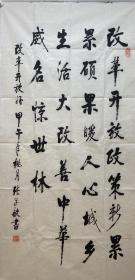 改革开放政策新景
景硕果暖人心城乡
生活大改善中华
威名惊世林
改革开放诗 甲午年桃月 张学敏书